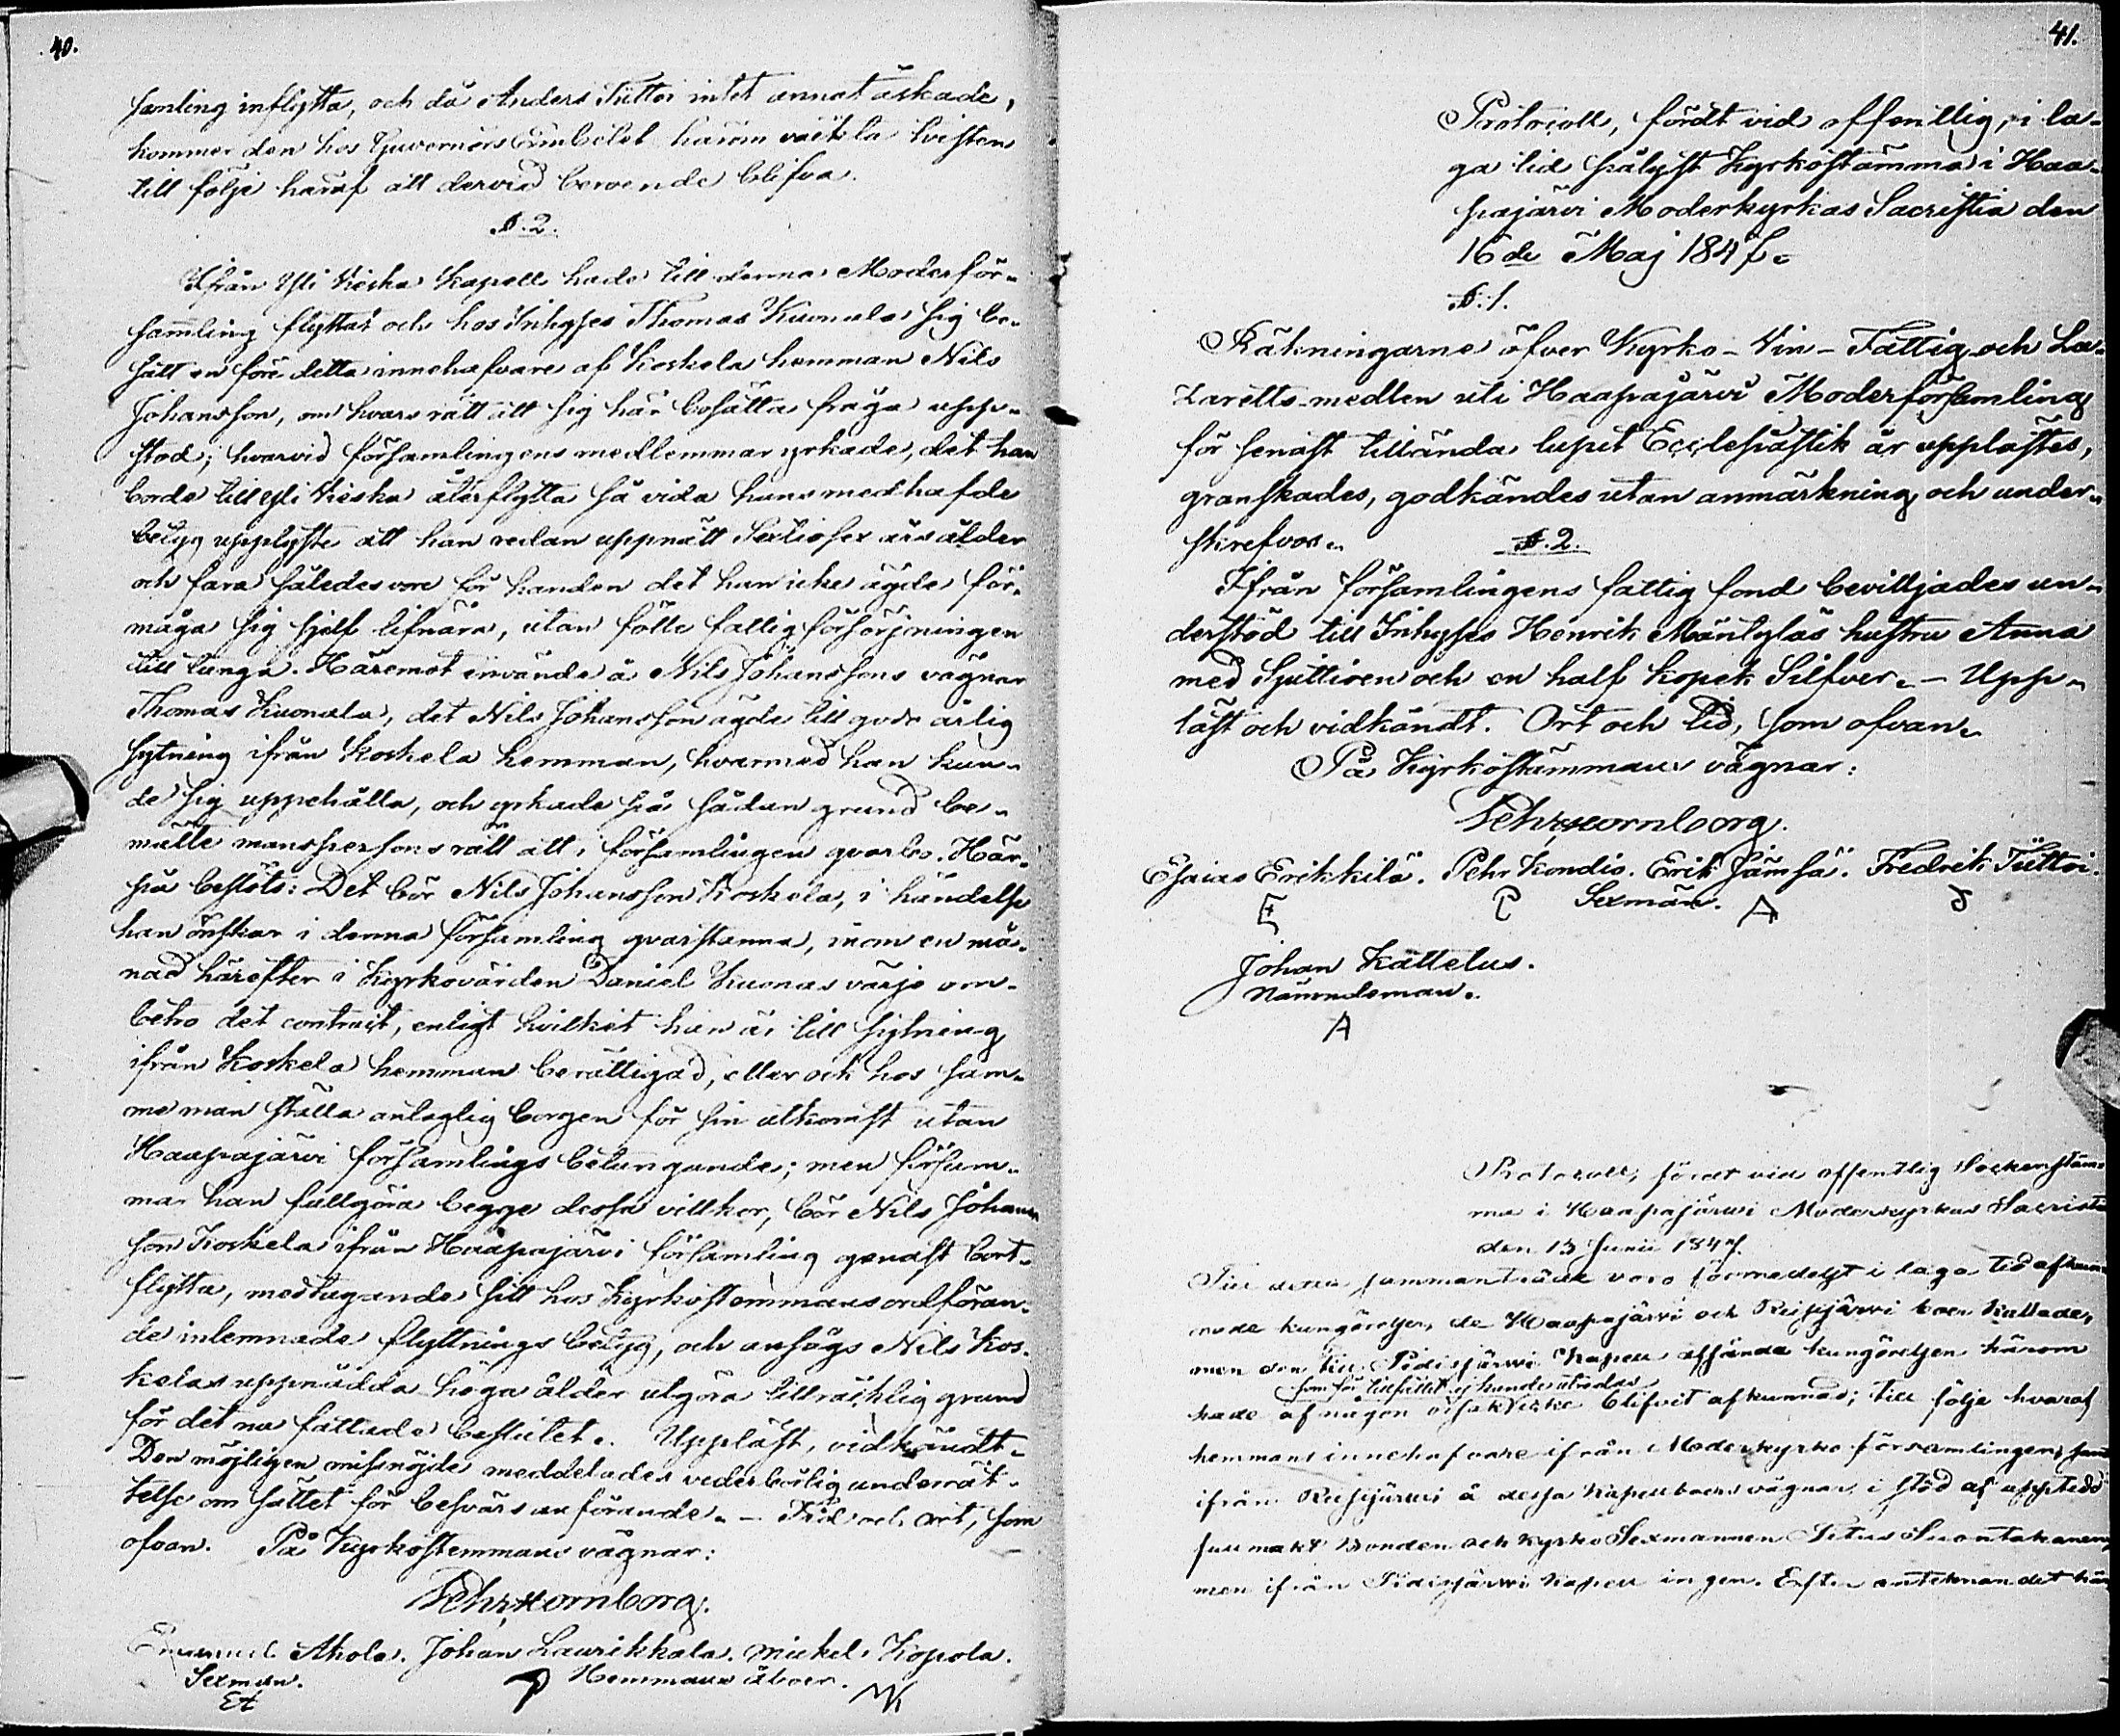 40.
samling inflytta, och då Anders Tuttoi intet annat äskade,
kommer den hos Guvernörs Embetet härom väckta tvisten
till följe häraf att dervid beroende blifva.
§. 2.
Ifrån Yli Kieska Kapell hade till denna Moderför-
samling flyttat och hos Inhyses Thomas Kuonala sig be-
satt en före detta innehafvare af Koskela hemman Nils
Johansson, om hvars rätt att sig här bosätta fråga upp-
stod; hvarvid församlingens medlemmar yrkade, det han
borde till Yli Kieska återflytta så vida hans medhafde
betyg upplyste att han redan uppnått Sextiosex års ålder
och fara således vore för handen det han icke ägde för-
måga sig sjelf lifnära, utan fölle fattigförsörjningen
till tunga. Häremot invände å Nils Johanssons vägnar
Thomas Kuonala, det Nils Johansson ägde till godo årlig
sytning ifrån Koskela hemman, hvarmed han kun-
de sig uppehålla, och yrkade på sådan grund be-
mälte manspersons rätt att i församlingen qvarbo. Här-
på beslöts: Det bör Nils Johansson Koskela, i händelse
han önskar i denna församling qvarstanna, inom en må-
nad härefter i Kyrkovärden Daniel Kuonas värjo om-
betro det contract, enligt hvilket han är till sytning
ifrån Koskela hemman berättigad, eller ock hos sam-
me man ställa antaglig borgen för sin utkomst utan
Haapajärvi församlings betungande; men försum-
mar han fullgöra begge dessa villkor, bör Nils Johans
son Koskela ifrån Haapajärvi församling genast bort-
flytta, medtagande sitt hos Kyrkostemmans ordföran-
de inlemnade flyttnings betyg, och ansågs Nils Kos-
kelas uppnådda höga ålder utgöra tillräcklig grund
för det nu fattade beslutet. Uppläst, vidkändt.
Den möjligen missnöjde meddelades vederbörlig underrät-
telse om sättet för besvärs anförande. – Tid och ort, som
ofvan. På Kyrkostemmans vägnar:
Pehr Hornborg.
Emanuel Ahola. Johan Laurikkala. Mickel Kopola.
Sexman. Hemmans åboer.
EA
41.
Protocoll, fördt vid offentlig, i la-
ga tid pålyst Kyrkostämma i Haa-
pajärvi Moderkyrkas Sacristia den
16de Maj 1847.
§. 1.
Räkningarne öfver Kyrko- Vin- Fattig och La-
zaretts-medlen uti Haapajärvi Moderförsamling
för senast tilländalupit Ecclesiastik år upplästes,
granskades, godkändes utan anmärkning och under-
skrefvos.
§. 2.
Ifrån församlingens fattig fond bevilljades un-
derstöd till Inhyses Henrik Mäntyläs hustru Anna
med Sjuttioen och en half Kopek Silfver. – Upp-
läst och vidkändt. Ort och tid, som ofvan.
På Kyrkostämmans vägnar:
Pehr Hornborg.
Esaias Erikkilä. Pehr Kondio. Erik Jämsä. Fredrik Tuttoi.
E P Sexmän. A
Johan Kattelus.
Nämndeman.
A
Protocoll, fördt vid offentlig Sockenstäm-
ma i Haapajärvi Moderkyrkas Sacristia
den 13 Junii 1847.
Till detta sammanträde voro förmedelst i laga tid afkun-
nade kungörelser, de Haapajärvi och Reisjärvi boer kallade,
men den till Pidisjärvi Kapell affända kungörelsen härom
som för tillfället ej kunde utredas
hade af någon orsak icke blifvit afkunnad; till följe hvaraf
hemmans innehafvare ifrån Moderkyrko församlingen, samt
ifrån Reisjärvi å dessa Kapellboers vägnar i stöd af uppteedd
fullmakt Bonden och Kyrko Sexmannen Titus Suontakanen,
men ifrån Pidisjärvi Kapell ingen. Efter antecknandet här